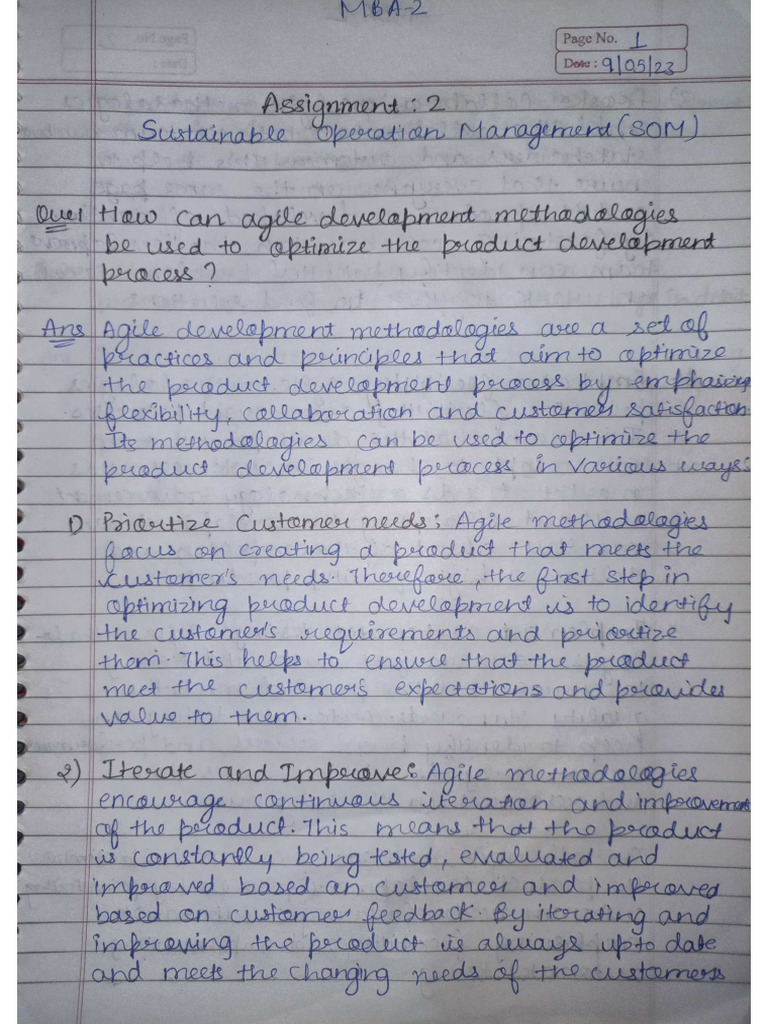 MBA-2
Page No. 1
Date: 9/05/23
Assignment: 2
Sustainable Operation Management (SOM)
Que1 How can agile development methodologies
be used to optimize the product development
process?
Ans Agile development methodologies are a set of
practices and principles that aim to optimize
the product development process by emphasizing
flexibility, collaboration and customer satisfaction.
Its methodologies can be used to optimize the
product development process in various ways:
1) Priortize Customer needs: Agile methodologies
focus on creating a product that meets the
customer's needs. Therefore, the first step in
optimizing product development is to identify
the customer's requirements and priortize
them. This helps to ensure that the product
meet the customer's expectations and provides
value to them.
2) Iterate and Improve: Agile methodologies
encourage continuous iteration and improvement
of the product. This means that the product
is constantly being tested, evaluated and
improved based an customer and improved
based on customer feedback. By iterating and
improving the product is always upto date
and meets the changing needs of the customers